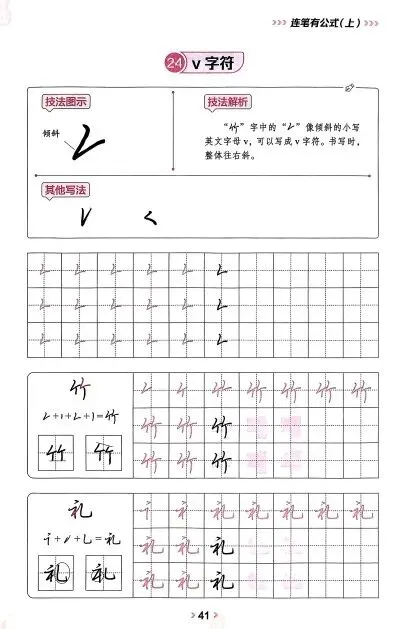 连笔有公式(上)
24 v 字符
技法图示
倾斜
技法解析
“竹”字中的“𠂉”像倾斜的小写
英文字母 v,可以写成 v 字符。书写时,
整体往右斜。
其他写法
竹
竹 竹
竹 竹 竹 竹 竹
竹 竹 竹
竹 竹 竹
礼
礼 礼
礼 礼 礼 礼 礼 礼
礼 礼 礼
礼 礼 礼
41